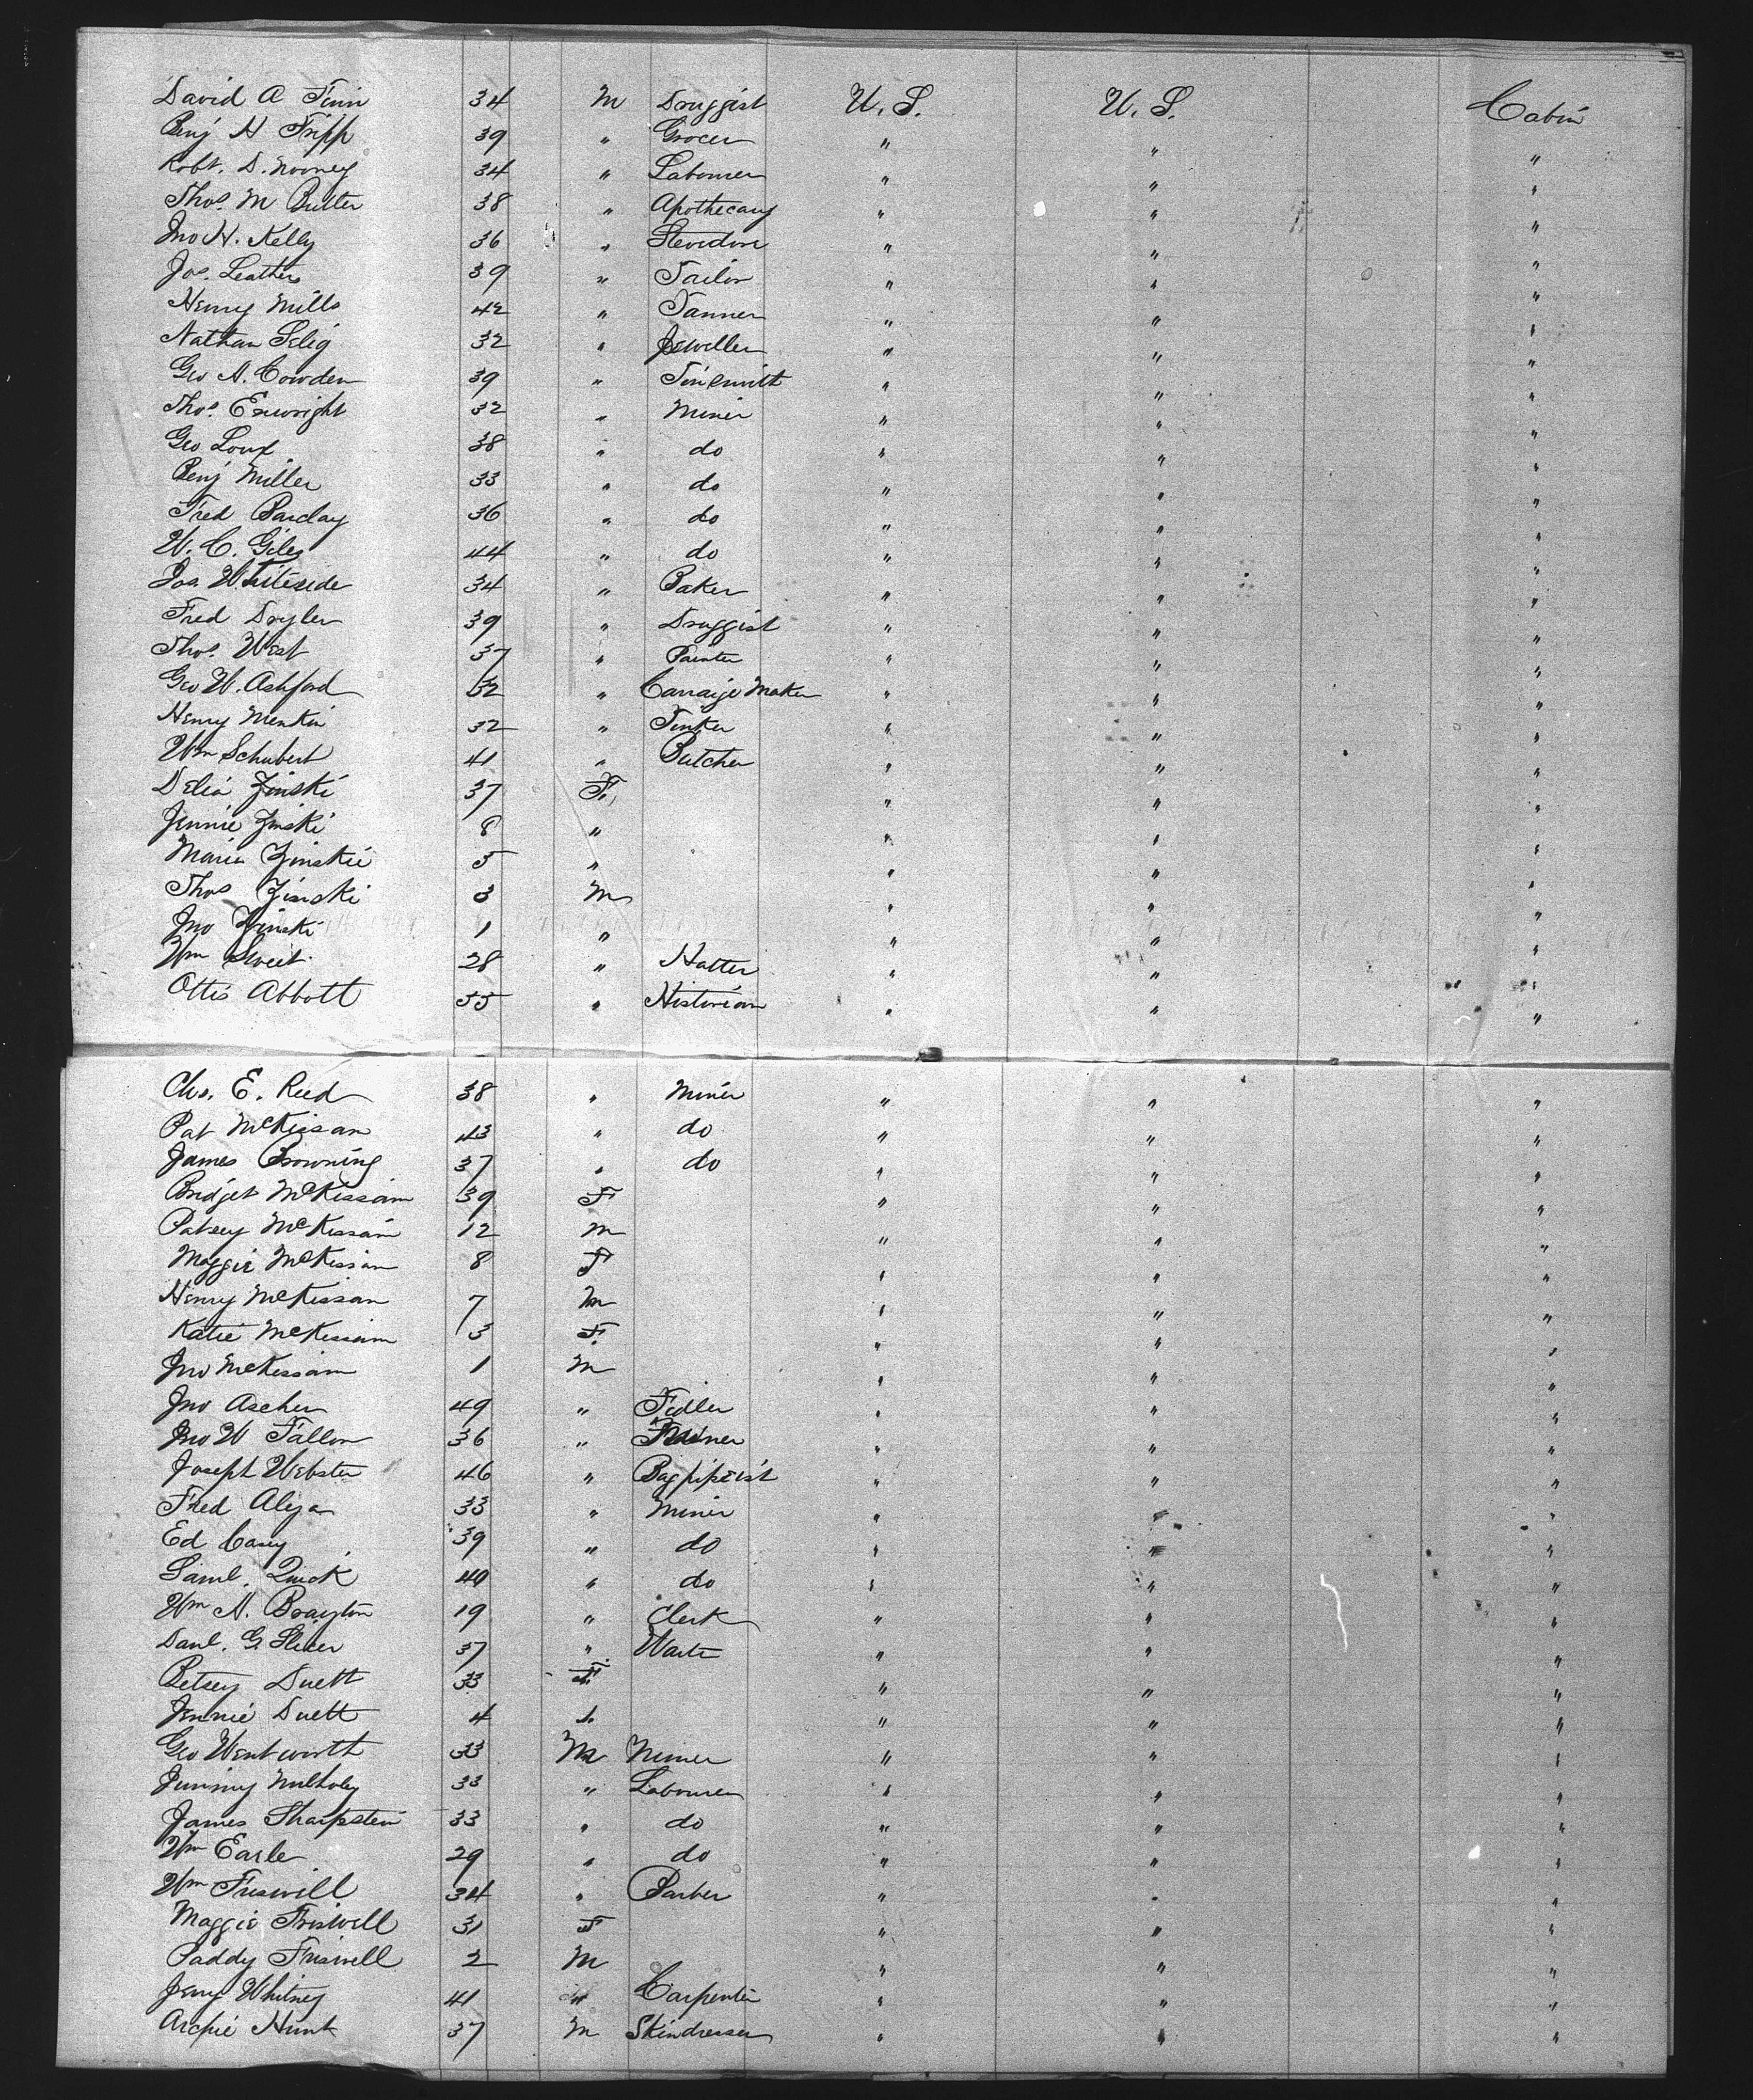 David A Finn 34 M Druggist U. S. U. S. Cabin
Benj H Tripp 39 " Grocer " " "
Robt. D. Mooney 34 " Labourer " " "
Thos. M Butler 38 " Apothecary " " "
Jno H. Kelly 36 " Stevedore " " "
Jos. Leathers 39 " Tailor " " "
Henry Mills 42 " Tanner " " "
Nathan Selig 32 " Jeweller " " "
Geo A. Cowden 39 " Tinsmith " " "
Thos. Enwright 32 " Miner " " "
Geo Loux 38 " do " " "
Benj Miller 33 " do " " "
Fred Barclay 36 " do " " "
W. C. Giles 44 " do " " "
Jos. Whiteside 34 " Baker " " "
Fred Dryler 39 " Druggist " " "
Thos. West 37 " Painter " " "
Geo W. Ashford 32 " Carraige Maker " " "
Henry Menkin 32 " Tinker " " "
Wm Schubert 41 " Butcher " " "
Delia Zinski 37 F. " " "
Jennie Zinski 8 " " " "
Maria Zinskie 5 " " " "
Thos Zinski 3 M " " "
Jno Zinski 1 " " " "
Wm Sweet 28 " Hatter " " "
Ottis Abbott 55 " Historian " " "
Chs. E. Reed 38 " Miner " " "
Pat McKissam 43 " do " " "
James Browning 37 " do " " "
Bridget McKissam 39 F " " "
Patsey McKissam 12 M " " "
Maggie McKissam 8 F " " "
Henry McKissam 7 M " " "
Katie McKissam 3 F. " " "
Jno McKissam 1 M " " "
Jno Ascher 49 " Fidler " " "
Jno W Fallon 36 " " " "
Joseph Webster 46 " Bagpipeist " " "
Fred Alga 33 " Miner " " "
Ed Casey 39 " do " " "
Saml. Quick 49 " do " " "
Wm N. Brayton 19 " Clerk " " "
Danl. G. Slicer 37 " Waiter " " "
Betsey Duett 33 F. " " "
Jennie Duett 4 " " "
Geo Wentworth 33 M Miner " " "
Jimmy 33 " Labourer " " "
James Sharpstein 33 " do " " "
Wm Earle 29 " do " " "
Wm Friswill 34 " Barber " " "
Maggie Friswell 31 F " " "
Paddy Friswell 2 M " " "
Jerry Whitney 41 " Carpenter " " "
Archie Hunt 37 M Skindresser " " "